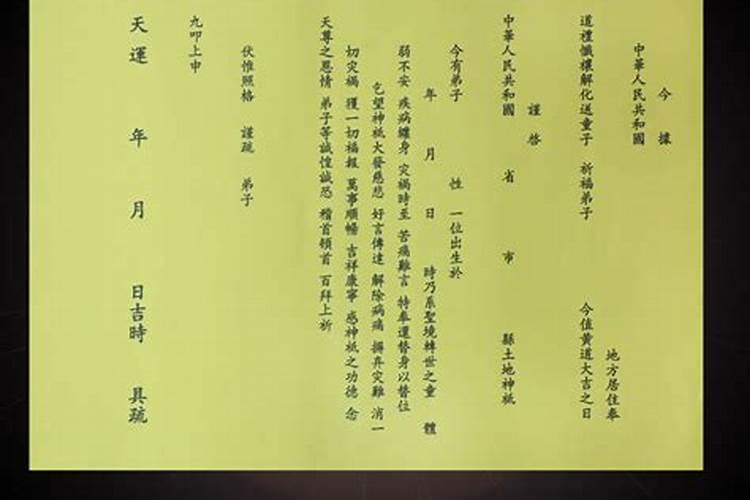 今據
中華人民共和國
地方居住奉
道禮懺禳解化送童子 祈福弟子 今值黃道大吉之日
謹啓
中華人民共和國 省 市 縣土地神祇
今有弟子 性 一位出生於
年 月 日 時乃系聖境轉世之童 體
弱不安 疾病纏身 灾禍時至 苦痛難言 特奉還替身以替位
乞望神祇大發慈悲 好言傳達 解除病痛 摒弃灾難 消一
切灾禍 獲一切福報 萬事順暢 吉祥康寧 感神祇之功德 念
天尊之恩情 弟子等誠惶誠恐 稽首頓首 百拜上祈
伏惟照格 謹疏 弟子
九叩上申
天運 年 月 日吉時 具疏